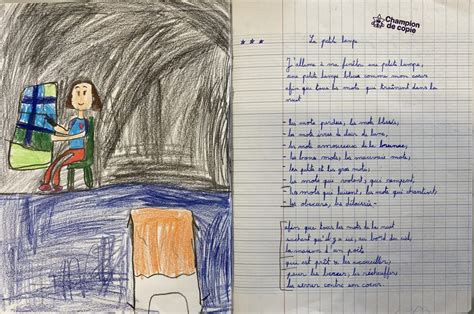 Champion
de copie
★ ★ ★
Le petit lampe
J'allume à ma fenêtre une petite lampe,
une petite lampe bleue comme mon cœur
afin que tous les mots qui traînent dans la
nuit
- les mots perdus, les mots blessés,
- les mots ivres de clair de lune,
- les mots amoureux de la brume,
- les bons mots, les mauvais mots,
- les petits et les gros mots,
- les mots qui volent, qui rampent,
- les mots qui luisent, les mots qui chantent,
- les obscurs, les délaissés -
afin que tous les mots de la nuit
sachent qu'il y a ici, au bord du ciel,
la maison d'un poète
qui est prêt à les accueillir,
pour les bercer, les réchauffer
les serrer contre son cœur.